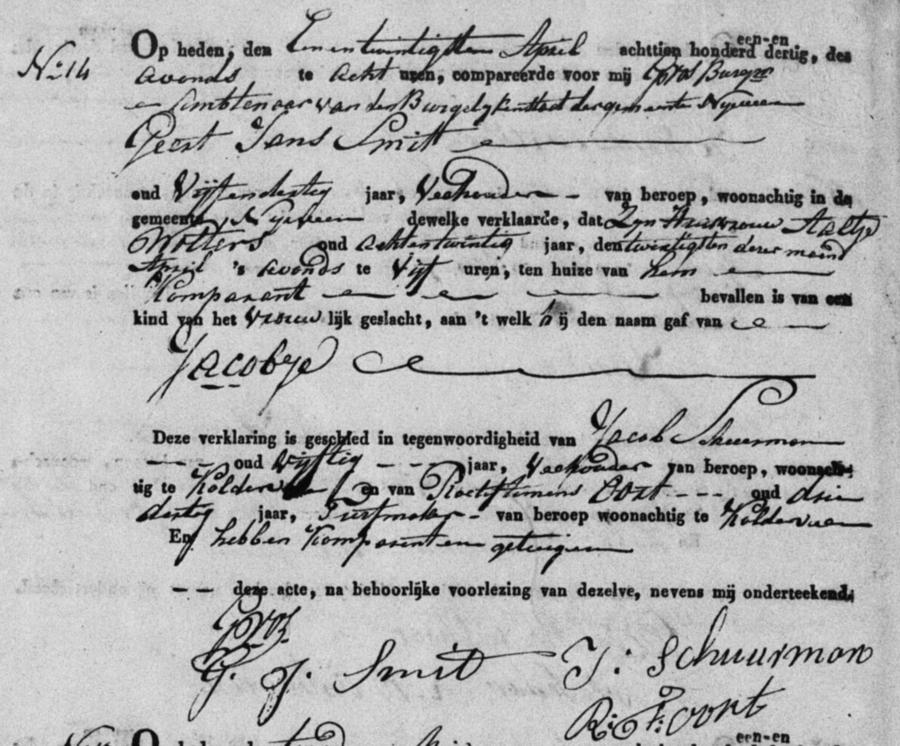 een-en
Op heden, den Eenentwintigsten April achttien honderd dertig, des
No. 14 avonds te acht uren, compareerde voor mij
Ambtenaar van den Burgelyken staat der gemeente Nyeveen
Geert Jans Smitt
oud Vijfendertig jaar, Veehouder van beroep, woonachtig in de
gemeente Nyeveen dewelke verklaarde, dat Zyn Huisvrouw Aaltje
Wolters oud achtentwintig jaar, den twintigsten dezer maand
April 's avonds te Vijf uren, ten huize van hem
Komparant bevallen is van een
kind van het vrouw lijk geslacht, aan 't welk hij den naam gaf van
Jacobje
Deze verklaring is geschied in tegenwoordigheid van Jacob Schuurman
oud vijftig jaar, Veehouder van beroep, woonach-
tig te Kolderveen en van Oort oud drie
dertig jaar, Turfmaker van beroep woonachtig te Kolderveen
En hebben Komparant en getuigen
deze acte, na behoorlijke voorlezing van dezelve, nevens mij onderteekend.
G. J. Smit J: Schuurman
R: F: oort
een-en